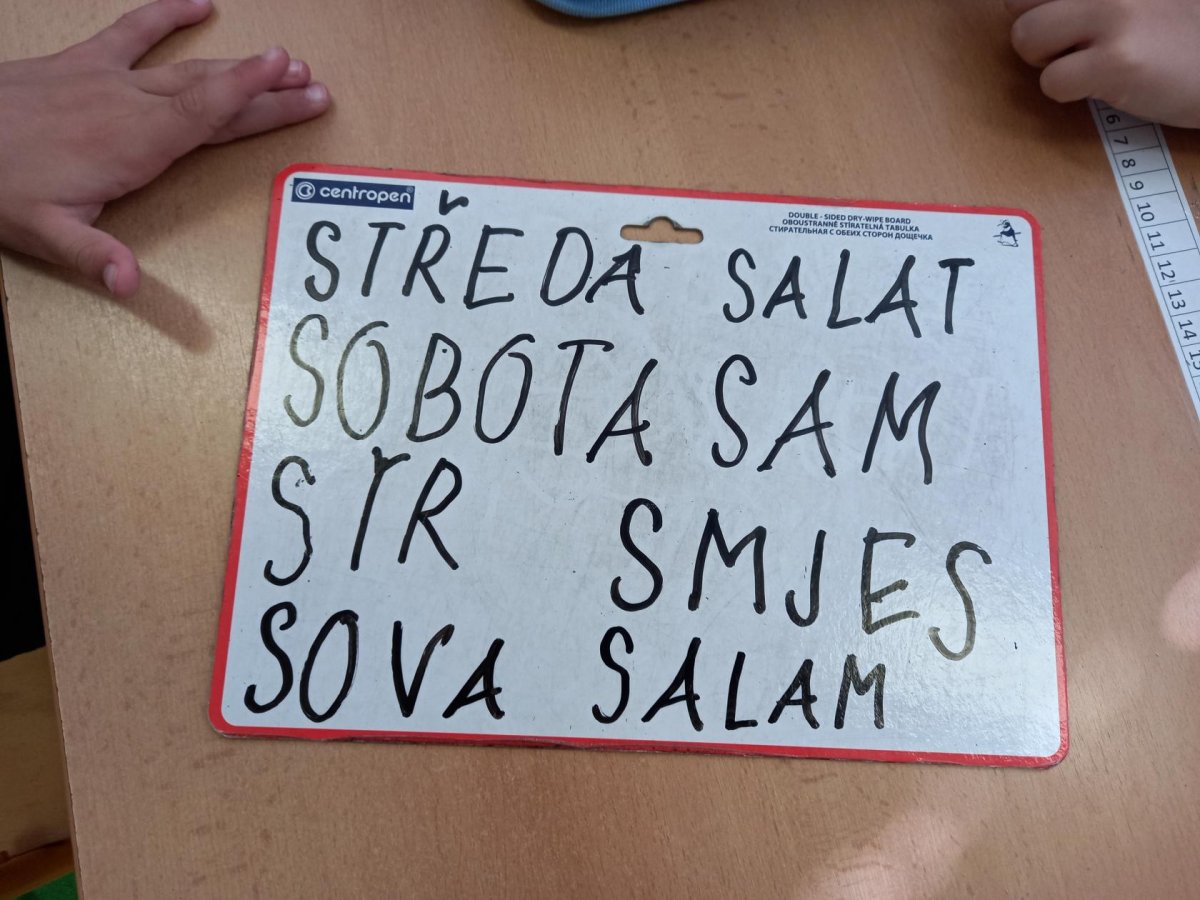 centropen®
DOUBLE - SIDED DRY-WIPE BOARD
OBOUSTRANNĚ STÍRATELNÁ TABULKA
СТИРАТЕЛЬНАЯ С ОБЕИХ СТОРОН ДОЩЕЧКА
STŘEDA SALAT
SOBOTA SAM
STR SMJES
SOVA SALAM
6
7
8
9
10
11
12
13
14
15